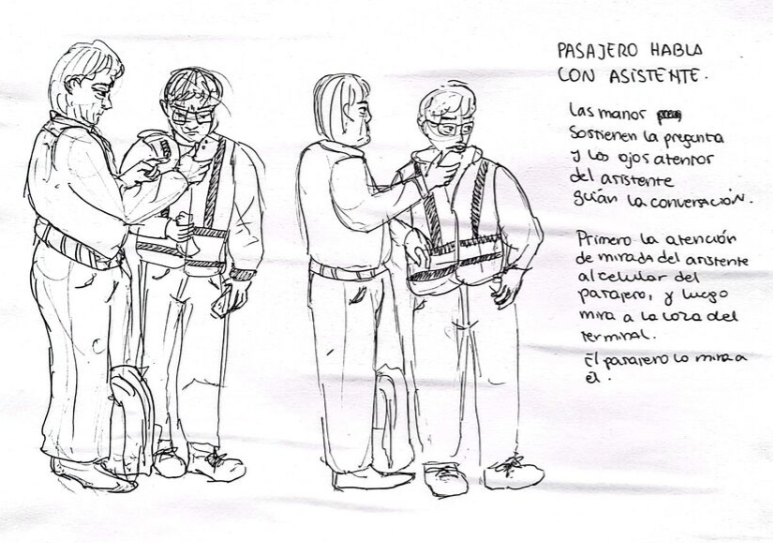 PASAJERO HABLA
CON ASISTENTE.
Las manos
sostienen la pregunta
y los ojos atentos
del asistente
guían la conversación.
Primero la atención
de mirada del asistente
al celular del
pasajero, y luego
mira a la loza del
terminal.
El pasajero lo mira a
él.